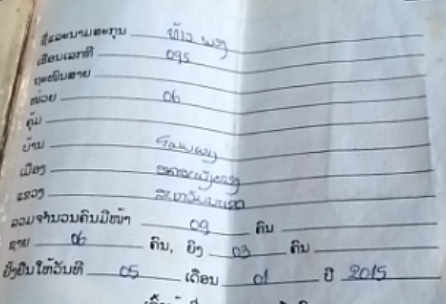 ຊື່ແລະນາມສະກຸນ ທ້າວ ພູງ
ເຮືອນເລກທີ 095
ຖະໜົນສາຍ
ໜ່ວຍ 06
ຄຸ້ມ
ບ້ານ
ເມືອງ
ແຂວງ
ລວມຈຳນວນຄົນມີໜ້າ 09 ຄົນ
ຊາຍ 06 ຄົນ, ຍິງ 03 ຄົນ
ຢັ້ງຢືນໃຫ້ວັນທີ 05 ເດືອນ 01 ປີ 2015